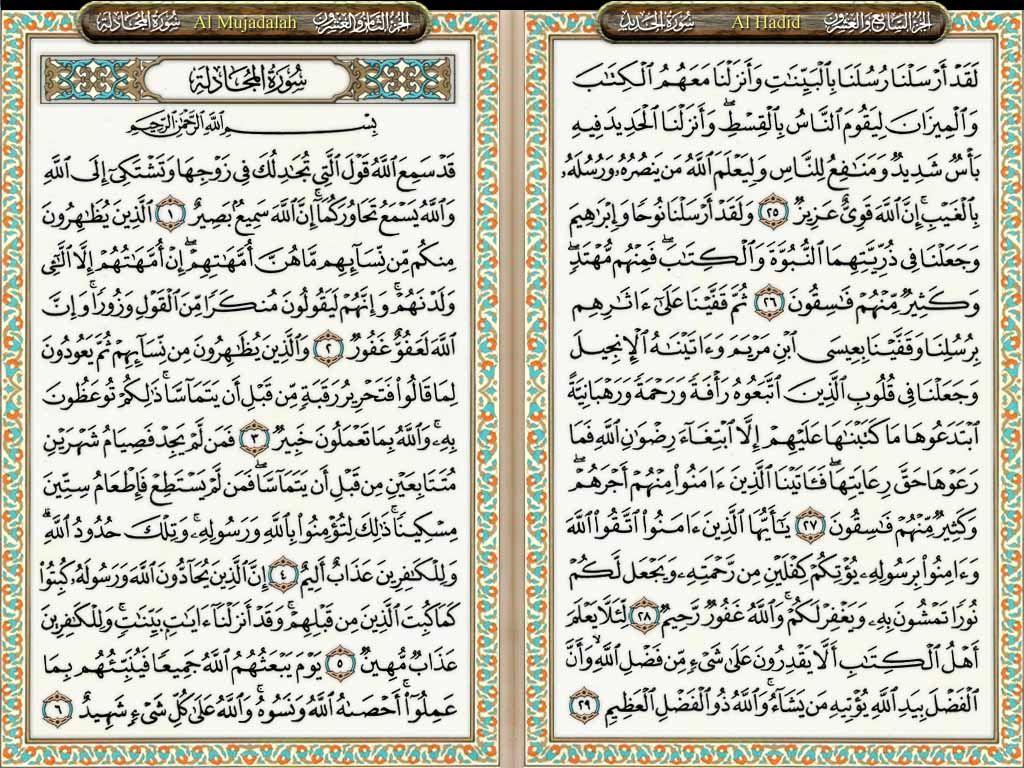 الجزء السابع والعشرون
Al Hadid
سورة الحديد
لَقَدْ أَرْسَلْنَا رُسُلَنَا بِالْبَيِّنَٰتِ وَأَنزَلْنَا مَعَهُمُ الْكِتَٰبَ
وَالْمِيزَانَ لِيَقُومَ النَّاسُ بِالْقِسْطِ ۖ وَأَنزَلْنَا الْحَدِيدَ فِيهِ
بَأْسٌ شَدِيدٌ وَمَنَٰفِعُ لِلنَّاسِ وَلِيَعْلَمَ اللَّهُ مَن يَنصُرُهُۥ وَرُسُلَهُۥ
بِالْغَيْبِ ۚ إِنَّ اللَّهَ قَوِىٌّ عَزِيزٌ ٢٥ وَلَقَدْ أَرْسَلْنَا نُوحًا وَإِبْرَٰهِيمَ
وَجَعَلْنَا فِى ذُرِّيَّتِهِمَا النُّبُوَّةَ وَالْكِتَٰبَ ۖ فَمِنْهُم مُّهْتَدٍ ۖ
وَكَثِيرٌ مِّنْهُمْ فَٰسِقُونَ ٢٦ ثُمَّ قَفَّيْنَا عَلَىٰٓ ءَاثَٰرِهِم
بِرُسُلِنَا وَقَفَّيْنَا بِعِيسَى ابْنِ مَرْيَمَ وَءَاتَيْنَٰهُ الْإِنجِيلَ
وَجَعَلْنَا فِى قُلُوبِ الَّذِينَ اتَّبَعُوهُ رَأْفَةً وَرَحْمَةً وَرَهْبَانِيَّةً
ابْتَدَعُوهَا مَا كَتَبْنَٰهَا عَلَيْهِمْ إِلَّا ابْتِغَآءَ رِضْوَٰنِ اللَّهِ فَمَا
رَعَوْهَا حَقَّ رِعَايَتِهَا ۖ فَـَٔاتَيْنَا الَّذِينَ ءَامَنُوا۟ مِنْهُمْ أَجْرَهُمْ ۖ
وَكَثِيرٌ مِّنْهُمْ فَٰسِقُونَ ٢٧ يَٰٓأَيُّهَا الَّذِينَ ءَامَنُوا۟ اتَّقُوا۟ اللَّهَ
وَءَامِنُوا۟ بِرَسُولِهِۦ يُؤْتِكُمْ كِفْلَيْنِ مِن رَّحْمَتِهِۦ وَيَجْعَل لَّكُمْ
نُورًا تَمْشُونَ بِهِۦ وَيَغْفِرْ لَكُمْ ۚ وَاللَّهُ غَفُورٌ رَّحِيمٌ ٢٨ لِّئَلَّا يَعْلَمَ
أَهْلُ الْكِتَٰبِ أَلَّا يَقْدِرُونَ عَلَىٰ شَىْءٍ مِّن فَضْلِ اللَّهِ ۙ وَأَنَّ
الْفَضْلَ بِيَدِ اللَّهِ يُؤْتِيهِ مَن يَشَآءُ ۚ وَاللَّهُ ذُو الْفَضْلِ الْعَظِيمِ ٢٩
الجزء الثامن والعشرون
Al Mujadalah
سورة المجادلة
سُورَةُ المُجَادلَة
بِسْمِ اللَّهِ الرَّحْمَٰنِ الرَّحِيمِ
قَدْ سَمِعَ اللَّهُ قَوْلَ الَّتِى تُجَٰدِلُكَ فِى زَوْجِهَا وَتَشْتَكِىٓ إِلَى اللَّهِ
وَاللَّهُ يَسْمَعُ تَحَاوُرَكُمَآ ۚ إِنَّ اللَّهَ سَمِيعٌۢ بَصِيرٌ ١ الَّذِينَ يُظَٰهِرُونَ
مِنكُم مِّن نِّسَآئِهِم مَّا هُنَّ أُمَّهَٰتِهِمْ ۖ إِنْ أُمَّهَٰتُهُمْ إِلَّا الَّٰٓـِٔى
وَلَدْنَهُمْ ۚ وَإِنَّهُمْ لَيَقُولُونَ مُنكَرًا مِّنَ الْقَوْلِ وَزُورًا ۚ وَإِنَّ
اللَّهَ لَعَفُوٌّ غَفُورٌ ٢ وَالَّذِينَ يُظَٰهِرُونَ مِن نِّسَآئِهِمْ ثُمَّ يَعُودُونَ
لِمَا قَالُوا۟ فَتَحْرِيرُ رَقَبَةٍ مِّن قَبْلِ أَن يَتَمَآسَّا ۚ ذَٰلِكُمْ تُوعَظُونَ
بِهِۦ ۚ وَاللَّهُ بِمَا تَعْمَلُونَ خَبِيرٌ ٣ فَمَن لَّمْ يَجِدْ فَصِيَامُ شَهْرَيْنِ
مُتَتَابِعَيْنِ مِن قَبْلِ أَن يَتَمَآسَّا ۖ فَمَن لَّمْ يَسْتَطِعْ فَإِطْعَامُ سِتِّينَ
مِسْكِينًا ۚ ذَٰلِكَ لِتُؤْمِنُوا۟ بِاللَّهِ وَرَسُولِهِۦ ۚ وَتِلْكَ حُدُودُ اللَّهِ ۗ
وَلِلْكَٰفِرِينَ عَذَابٌ أَلِيمٌ ٤ إِنَّ الَّذِينَ يُحَآدُّونَ اللَّهَ وَرَسُولَهُۥ كُبِتُوا۟
كَمَا كُبِتَ الَّذِينَ مِن قَبْلِهِمْ ۚ وَقَدْ أَنزَلْنَآ ءَايَٰتٍۭ بَيِّنَٰتٍ ۚ وَلِلْكَٰفِرِينَ
عَذَابٌ مُّهِينٌ ٥ يَوْمَ يَبْعَثُهُمُ اللَّهُ جَمِيعًا فَيُنَبِّئُهُم بِمَا
عَمِلُوٓا۟ ۚ أَحْصَىٰهُ اللَّهُ وَنَسُوهُ ۚ وَاللَّهُ عَلَىٰ كُلِّ شَىْءٍ شَهِيدٌ ٦